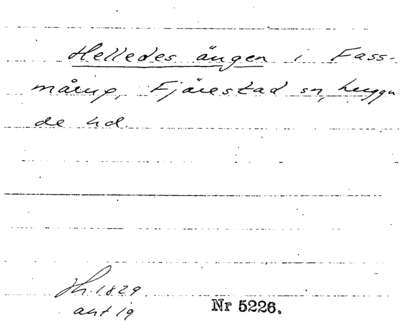 Helledes ängen i Fass-
mårup, Fjärestad sn, Luggu
de hd.
1829
akt 19
Nr 5226.